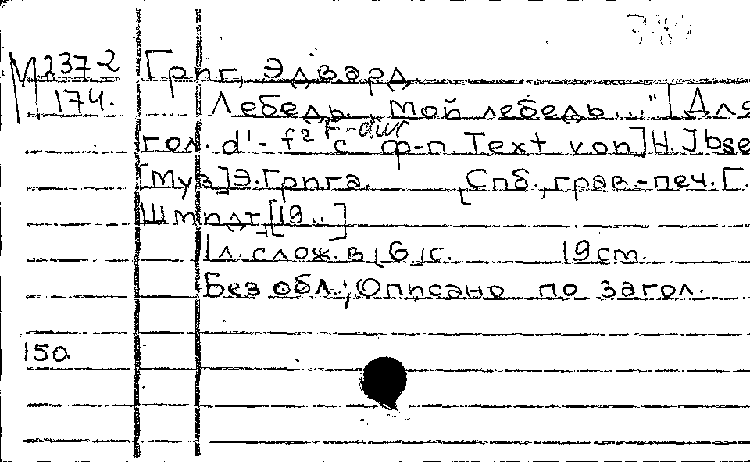 М 237-2 Григ, Эдвард
174. Лебедь. „Мой лебедь..." [Для
гол. d'-f² F-dur с ф-п. Text von] H. Ibse
[Муз.] Э. Грига. [Спб., грав.-печ. Г.
Шмидт, [19..]
1 л. слож. в [6] с. 19 cm.
Без обл.; Описано по загол.
150